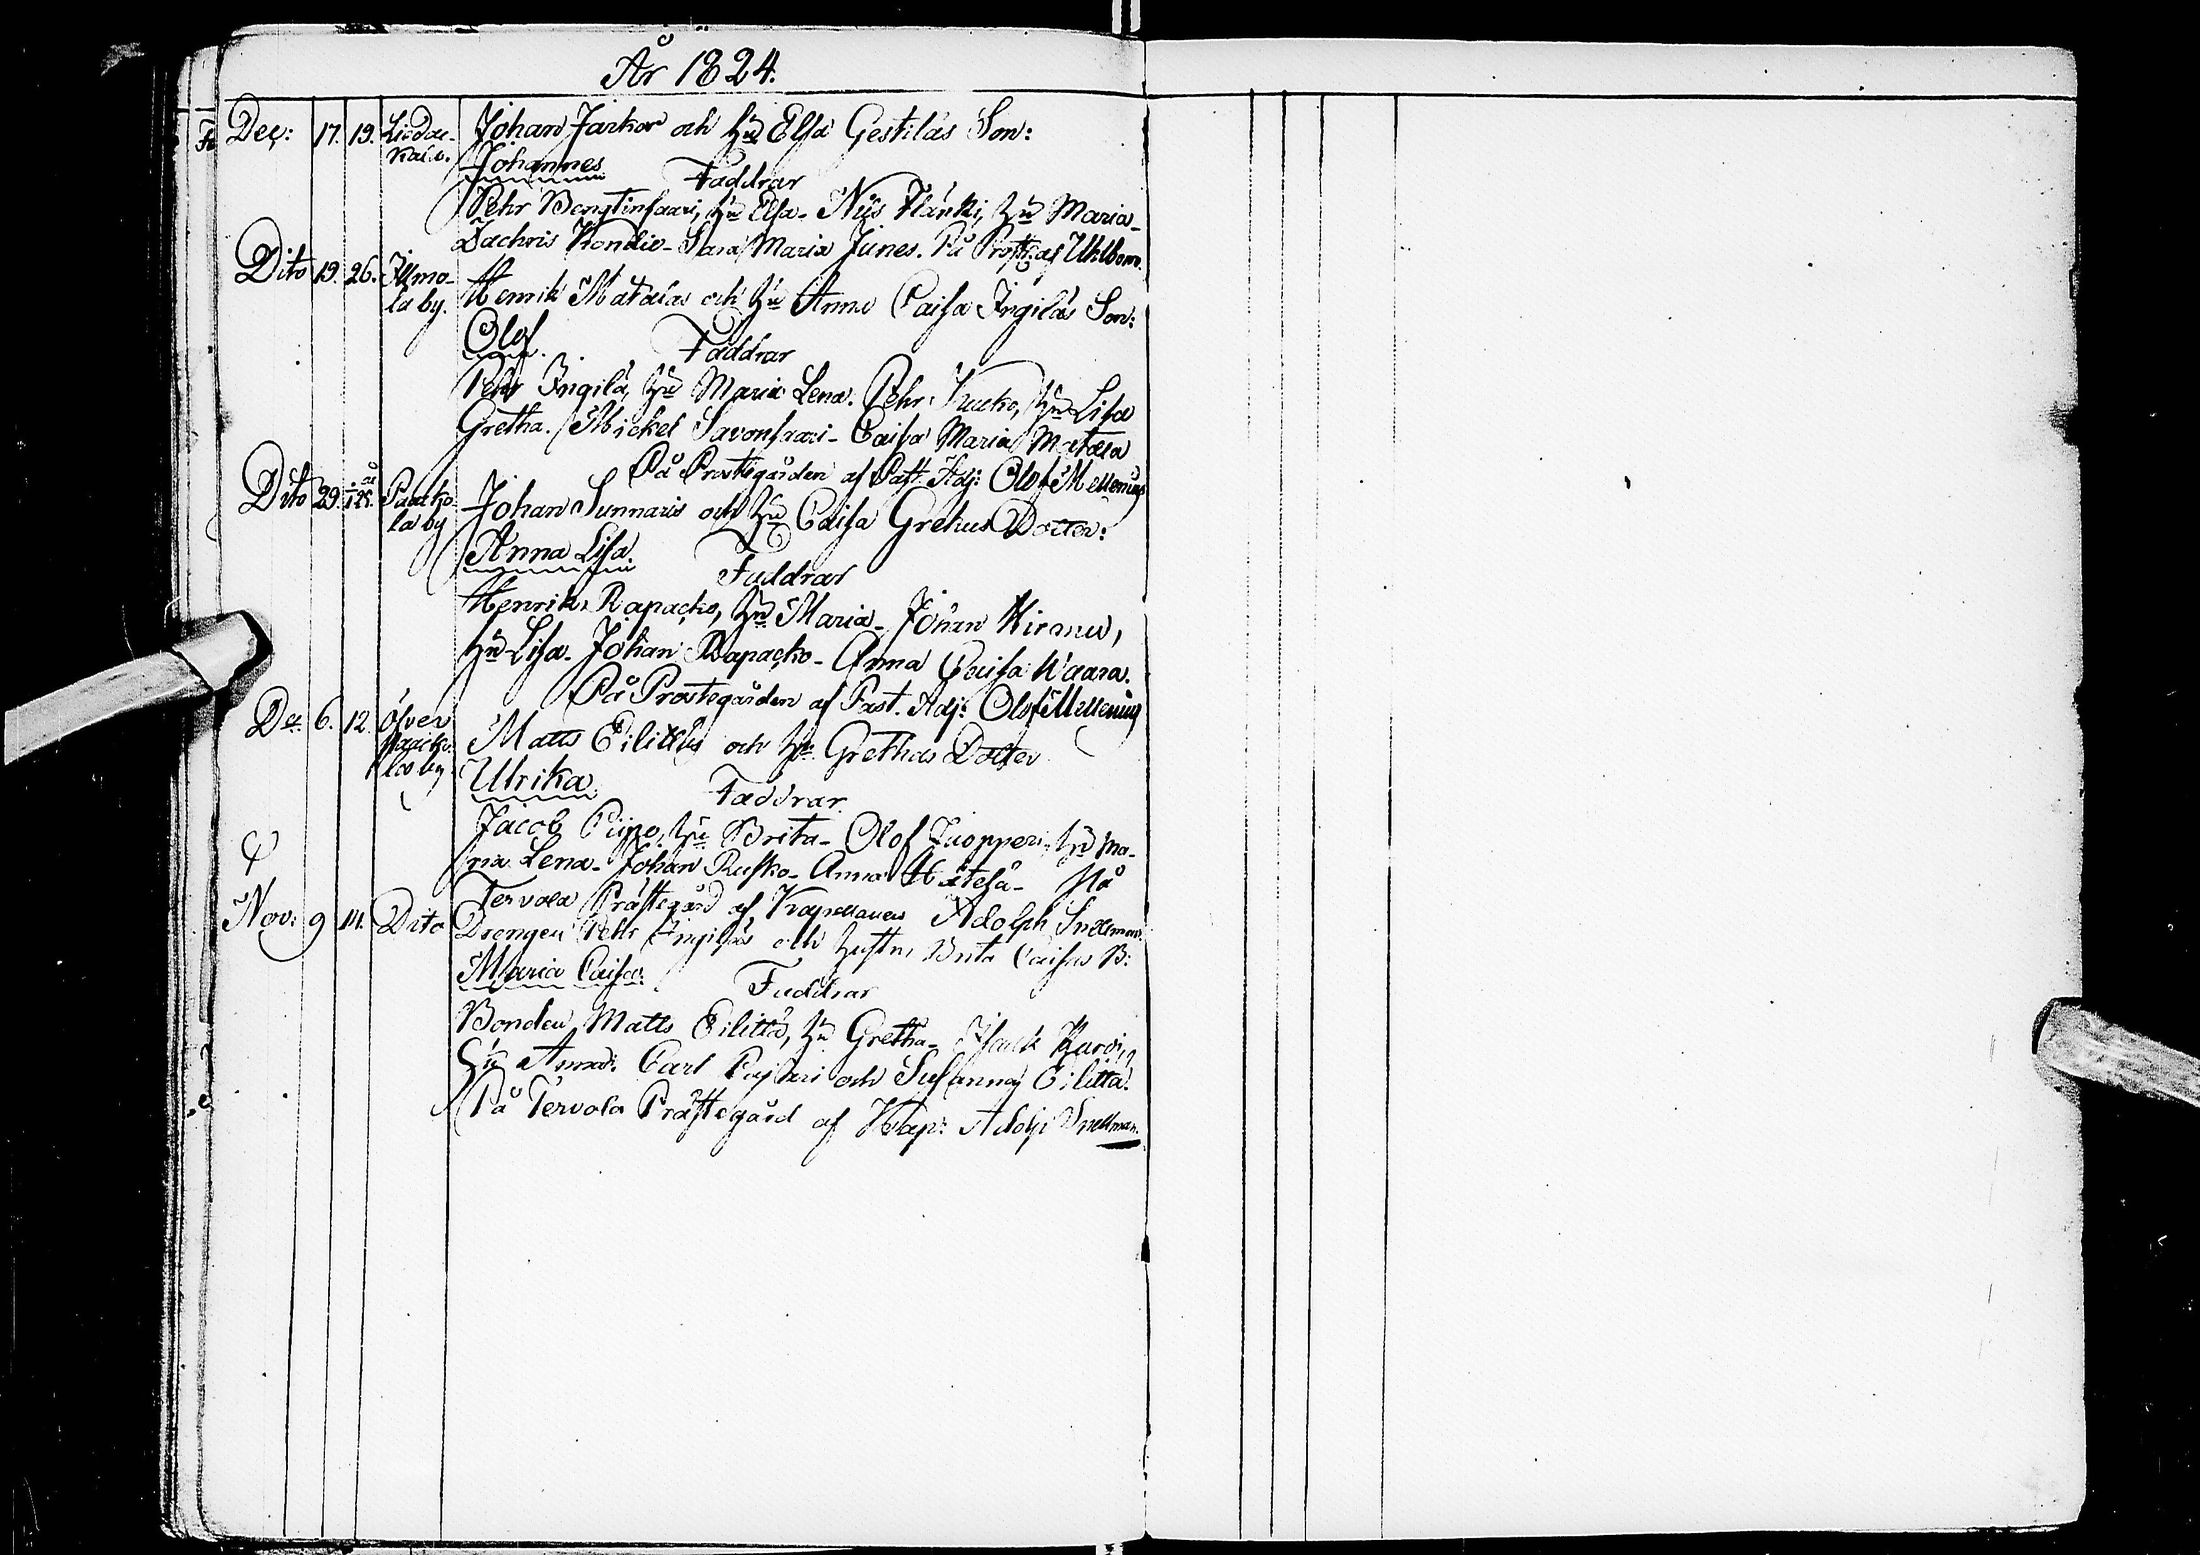 År 1824.
Dec: 17. 19. Johan Jarkos och Hu Elsa Gestilas Son:
Johannes
Faddrar
Pehr Bengtinsaari, Hu Elsa - Nils Flänki, Hu Maria -
Zachris Kondio - Sara Maria Junes. På Prostg: af Uhlbom.
Dito 19. 26. Ilmo-
la by. Henrik Matalas och Hu Anna Caisa Ingilas Son:
Olof.
Faddrar
Pehr Ingilä, Hu Maria Lena. Pehr Hu Lisa
Gretha. Mickel Savonsaari - Caisa Maria Matala
På Prostegården af Past. Adj: Olof Mellenius
Dito 29. Paacko-
la by Johan Sunnaris och Hu Caisa Grethas Dotter:
Anna Lisa.
Faddrar
Henrik Rapacko, Hu Maria - Johan
Hu Lisa. Johan Rapacko - Anna Caisa Waara.
På Prostegården af Past. Adj: Olof Mellenius
Dec. 6. 12. Öfver
Paacko-
la by. Matts Eilittäs och Hu Grethas Dotter
Ulrika.
Faddrar.
Jacob Piipo, Hu Brita - Olof Juopperi, Hu Ma-
ria Lena - Johan Rusko - Anna - På
Tervola Prästegård af Kapellanen Adolph Snellman.
Nov: 9 14. Dito Drengen Pehr Ingiläs och Hustru Brita Caisas B:
Maria Caisa.
Faddrar
Bonden Matts Eilittä, Hu Gretha - Isack
Hu Anna. Carl Pajari och Susanna Eilittä.
På Tervola Prästegård af Kap: Adolp Snellman.